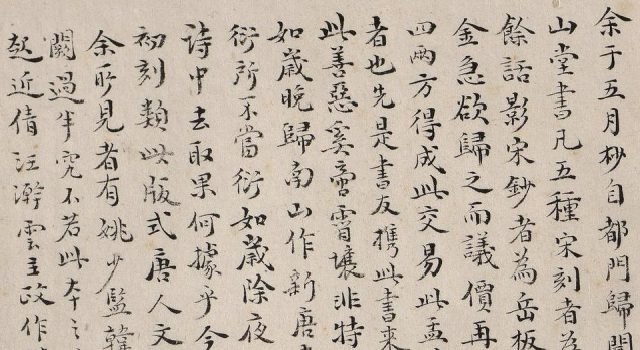 余于五月杪自都門歸聞
山堂書凡五種宋刻者為
餘話影宋鈔者為岳板
金急欲歸之而議價再
四兩方得成此交易此孟
者也先是書友攜此書來
此善惡奚啻霄壤非特
如歲晚歸南山作新唐
衍所不當衍如歲除夜
詩中去取果何據乎今
初刻類此版式唐人文
余所見者有姚少監韓
闕過半究不若此本之
起近倩汪澣雲主政作